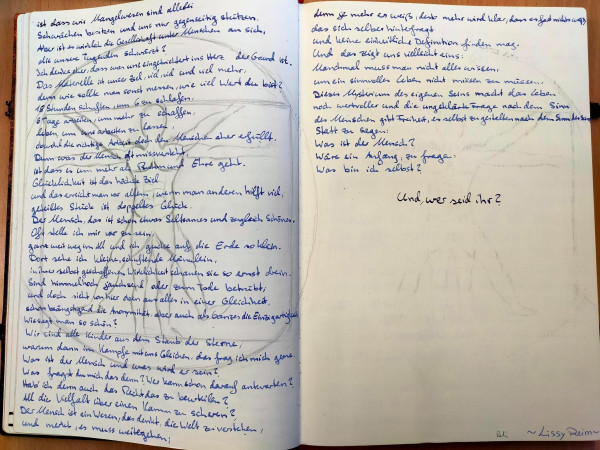 ist dass wir Mangelwesen sind allerlei
Schwächen besitzen und uns nur gegenseitig stützen.
Aber ist es wirklich die Gesellschaft unter Menschen an sich,
die unsere Tugenden schwärzt?
Ich denke eher, dass was uns eingetrichtert ins Herz der Grund ist.
Das Materielle ist unser Ziel, viel viel und viel mehr,
denn wie sollte man sonst messen, wie viel Wert du bist?
18 Stunden schuften, um 6 zu schlafen.
6 Tage arbeiten, um mehr zu schaffen.
leben, um uns arbeiten zu lassen
obwohl die richtige Arbeit doch den Menschen eher erfüllt.
Denn was der Mensch oft missversteht,
ist dass es um mehr als Ruhm und Ehre geht.
Glücklichkeit ist das höchste Ziel
und das erreicht man vor allem, wenn man anderen hilft viel,
geteiltes Glück ist doppeltes Glück.
Der Mensch, das ist schon etwas Seltsames und zugleich Schönes.
Oft stelle ich mir vor zu sein,
ganz weit weg im All und ich gucke auf die Erde so klein.
Dort sehe ich kleine, schuftende Männlein,
in ihrer selbst geschaffenen Wirklichkeit schauen sie so ernst drein.
Sind himmelhoch jauchzend oder zum Tode betrübt,
und doch sieht von hier oben aus alles in einer Gleichheit.
schon beängstigend die Anonymität, aber auch als Ganzes die Einzigartigkeit
Wie sagt man so schön?
Wir sind alle Kinder aus dem Staub der Sterne,
warum dann im Kampfe mit uns Gleichen, das frag ich mich gerne.
Was ist der Mensch und was wird er sein?
Was fragst du mich das denn? Wer kann schon darauf antworten?
Hab ich denn auch das Recht das zu beurteilen?
All die Vielfalt über einen Kamm zu scheren?
Der Mensch ist ein Wesen, das denkt, die Welt zu verstehen,
und merkt, es muss weitergehen,
denn je mehr er weiß, desto mehr wird klar, dass er fast nichts weiß
das sich selber hinterfragt
und keine einheitliche Definition finden mag.
Und das zeigt uns vielleicht eins:
Manchmal muss man nicht alles wissen,
um ein sinnvolles Leben nicht missen zu müssen.
Dieses Mysterium des eigenen Seins macht das Leben
noch wertvoller und die ungeklärte Frage nach dem Sinn
des Menschen gibt Freiheit, es selbst zu gestalten nach dem Sinn des Seins
Statt zu sagen:
Was ist der Mensch?
Wäre ein Anfang, zu fragen:
Was bin ich selbst?
Und, wer seid ihr?
~Lissy Reim~